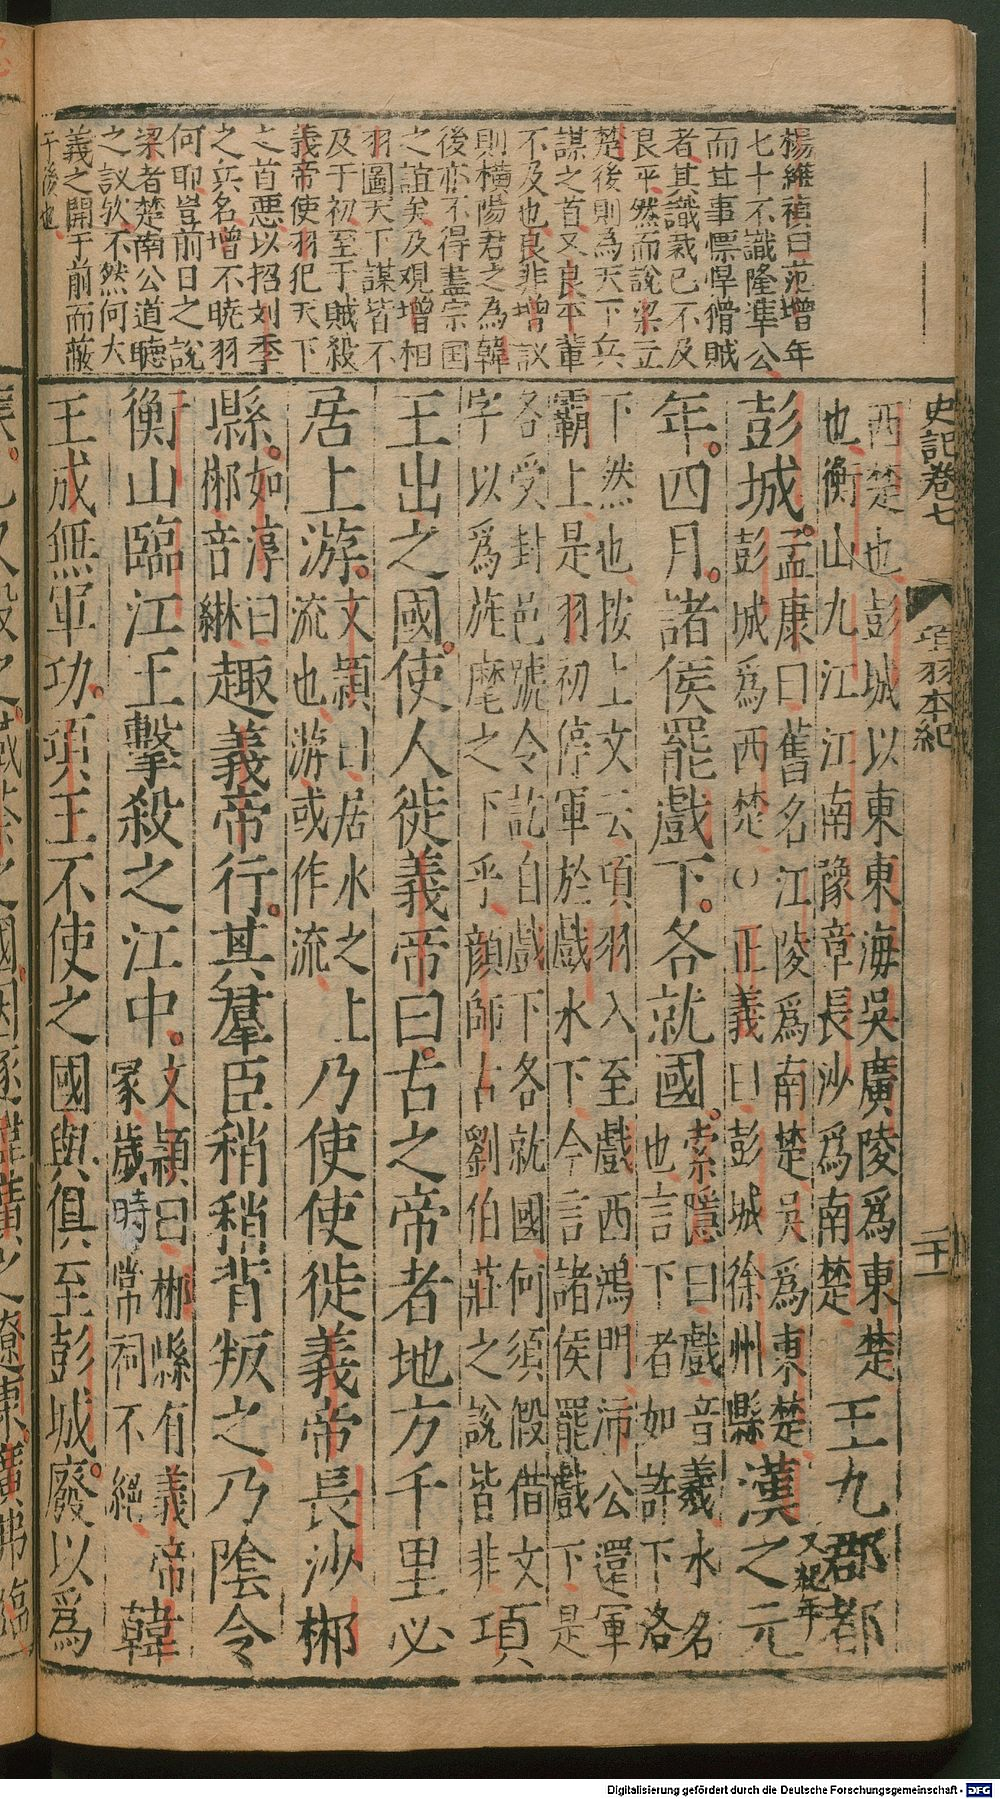 史記卷七
項羽本紀
二十一
楊維禎曰范增年
七十不識隆準公
而甘事慓悍猾賊
者其識裁已不及
良平然而說梁立
楚後則為天下兵
謀之首又良平輩
不及也良非增議
則橫陽君之為韓
後亦不得盡宗国
之誼矣及观增相
羽圖天下謀皆不
及于初至于賊殺
義帝使羽犯天下
之首惡以招刘季
之兵名增不曉羽
何耶豈前日之說
梁者楚南公道聽
之議欤不然何大
義之開于前而蔽
于後也
西楚也彭城以東東海吳廣陵為東楚
也衡山九江江南豫章長沙為南楚
王九郡都
彭城。
孟康曰舊名江陵爲南楚吳爲東楚
彭城爲西楚○正義曰彭城徐州縣
漢之元
又紀年
年。四月。諸侯罷戲下。各就國。
索隱曰戲音羲水名
也言下者如許下洛
下然也按上文云項羽入至戲西鴻門沛公還軍
霸上是羽初停軍於戲水下今言諸侯罷戲下是
各受封邑號令訖自戲下各就國何須假借文
字以爲旌麾之下乎顏師古劉伯莊之說皆非
項
王出之國。使人徙義帝曰。古之帝者地方千里必
居上游。
文頴曰居水之上
流也游或作流
乃使使徙義帝長沙郴
縣。
如淳曰
郴音綝
趣義帝行。其羣臣稍稍背叛之乃陰令
衡山臨江王擊殺之江中。
文頴曰郴縣有義帝
冢歲時常祠不絕
韓
王成無軍功。項王不使之國與俱至彭城。廢以爲
Digitalisierung gefördert durch die Deutsche Forschungsgemeinschaft - DFG